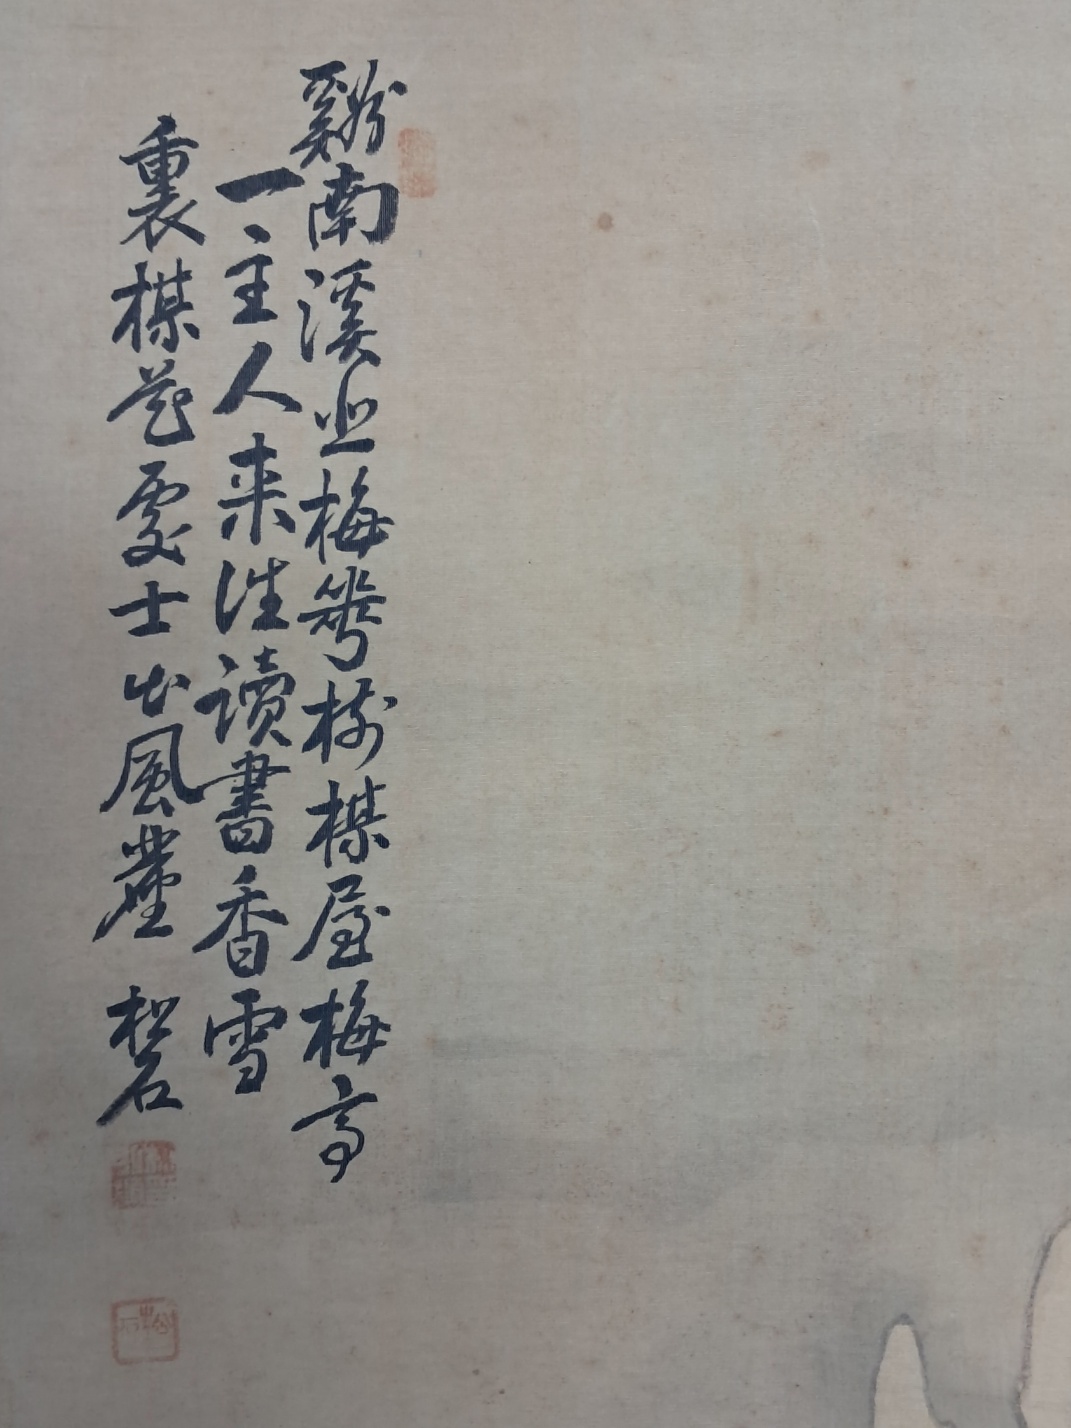 谿南溪北梅華樹楳屋梅亭
一主人来往讀書香雪
裏楳花處士出風塵 松石
松石